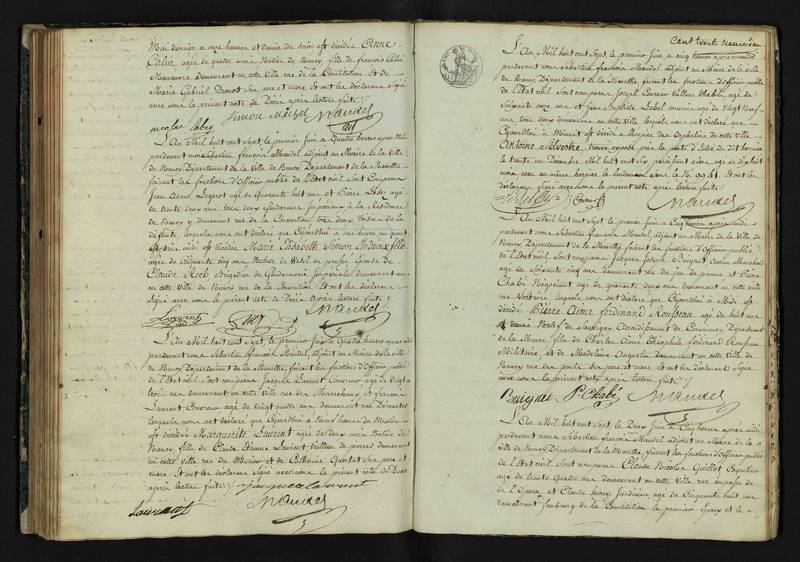 Mai dernier a onze heures et demie du soir est décédé Anne
Calin, agée de quatre mois Native de Nancy fille de francois Calin
Manœuvre demeurant en cette Ville rue de la Constitution et de
Marie Gabriel Son pere et mere et ont les declarans signé
avec nous le présent acte de Décès après lecture faite
Simon Michel Mandel
nicolas
L'An Mil huit cent Sept, le premier Juin a quatre heures après Midi
pardevant nous Sebastien francois Mandel adjoint au Maire de la Ville
de Nancy, Département de la Meurthe
faisant les fonctions d'Officier public de l'Etat civil Sont Comparus
Jean Adam agé de Quarante huit ans et Pierre agé
de trente deux ans tous deux Gendarmes Impériaux à la Résidence
de Nancy y demeurant rue de la Convention tous deux Voisins de la
défunte lesquels nous ont declaré que Cejourdhui a une heure un quart
après midi est décédée Marie Elisabeth Simon
agée de Cinquante cinq ans Native de Wesel en prusse Epouse de
Claude Koch Brigadier de Gendarmerie Impériale demeurant
en cette Ville de Nancy rue de la Convention Et ont les declarans
Signé avec nous le présent acte de Décès après lecture faite
Mandel
L'An Mil huit cent Sept, le premier Juin a Quatre heures après midi
pardevant nous Sébastien francois Mandel, adjoint au Maire de la Ville
de Nancy Département de la Meurthe faisant les fonctions d'Officier public
de l'Etat civil Sont comparus Jacques Laurent agé de Vingt
trois ans demeurant en cette Ville rue des Marechaux et francois
Laurent agé de Vingt quatre ans demeurant rue
lesquels nous ont declaré que Cejourdhui a Neuf heures du Matin
est décédée Marguerite Laurent agée de deux mois Native de
Nancy, fille de Claude Etienne Laurent tailleur de pierres demeurant
en cette Ville rue du et de Catherine Son pere et
mere Et ont les declarans Signé avec nous le présent acte de Décès
après lecture faite jacque laurent
Mandel
Laurent
Cent trente neuvieme
L'An Mil huit cent Sept, le premier Juin a cinq heures après midi
pardevant nous Sébastien francois Mandel adjoint au Maire de la Ville
de Nancy, Département de la Meurthe faisant les fonctions d'Officier public
de l'Etat civil Sont comparus Joseph tailleur d'habits agé de
Soixante onze ans et Jean Baptiste agé de Vingt Neuf
ans tous deux demeurant en cette Ville lesquels nous ont declaré que
Cejourdhui a Minuit est décédé a l'hospice des Orphelins de cette Ville
Antoine Silvestre, trouvé exposé près la porte d'Entrée du dit hospice
le trente un Decembre Mil huit cent Six agé de dix huit
mois reçu au même hospice le lendemain sous le No. 9961. Et ont les
declarans Signé avec nous le présent acte après lecture faite
Mandel
L'An Mil huit cent Sept, le premier Juin a Cinq heures après midi
pardevant nous Sébastien francois Mandel adjoint au Maire de la Ville de
Nancy Département de la Meurthe faisant les fonctions d'Officier public
de l'Etat civil, Sont comparus Jacques Joseph Marchand
agé de Soixante cinq ans demeurant rue du jeu de paume et Pierre
Chabé Négociant agé de quarante deux ans demeurant en cette Ville
rue Voltaire lesquels nous ont declaré que Cejourdhui a Midi est
décédé Pierre Aime ferdinand Rousseau agé de huit ans
et demie Natif de Sauvigny, Arrondissement de Commercy, Département
de la Meuse, fils de Charles Aime Théophile ferdinand Rousseau
Militaire, et de Madelaine Augustin demeurant en cette Ville de
Nancy rue des ponts Ses pere et mere Et ont les declarans Signé
avec nous le présent acte après lecture faite
Pre Chabé Mandel
L'An Mil huit cent Sept, le Deux Juin a Cinq heures après midi
pardevant nous Sébastien francois Mandel adjoint au Maire de la
Ville de Nancy Département de la Meurthe faisant les fonctions d'Officier public
de l'Etat civil Sont comparus Claude Nicolas Guillot
agé de trente Quatre ans demeurant en cette Ville rue impasse de
de l'Opera et Claude Jardinier agé de Cinquante huit ans
demeurant faubourg de la Constitution le premier et le